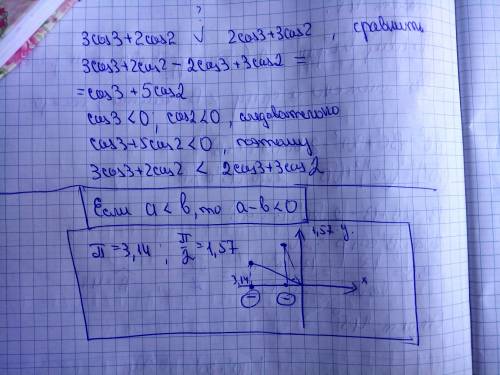 ?
3cos3+2cos2 ∨ 2cos3+3cos2, сравнить
3cos3+2cos2 - 2cos3+3cos2 =
= cos3 + 5cos2
cos3 < 0, cos2 < 0, следовательно
cos3+5cos2 < 0, поэтому
3cos3+2cos2 < 2cos3+3cos2
Если a < b, то a-b < 0
π = 3,14 ; π/2 = 1,57
1,57 y
3,14 x
− −